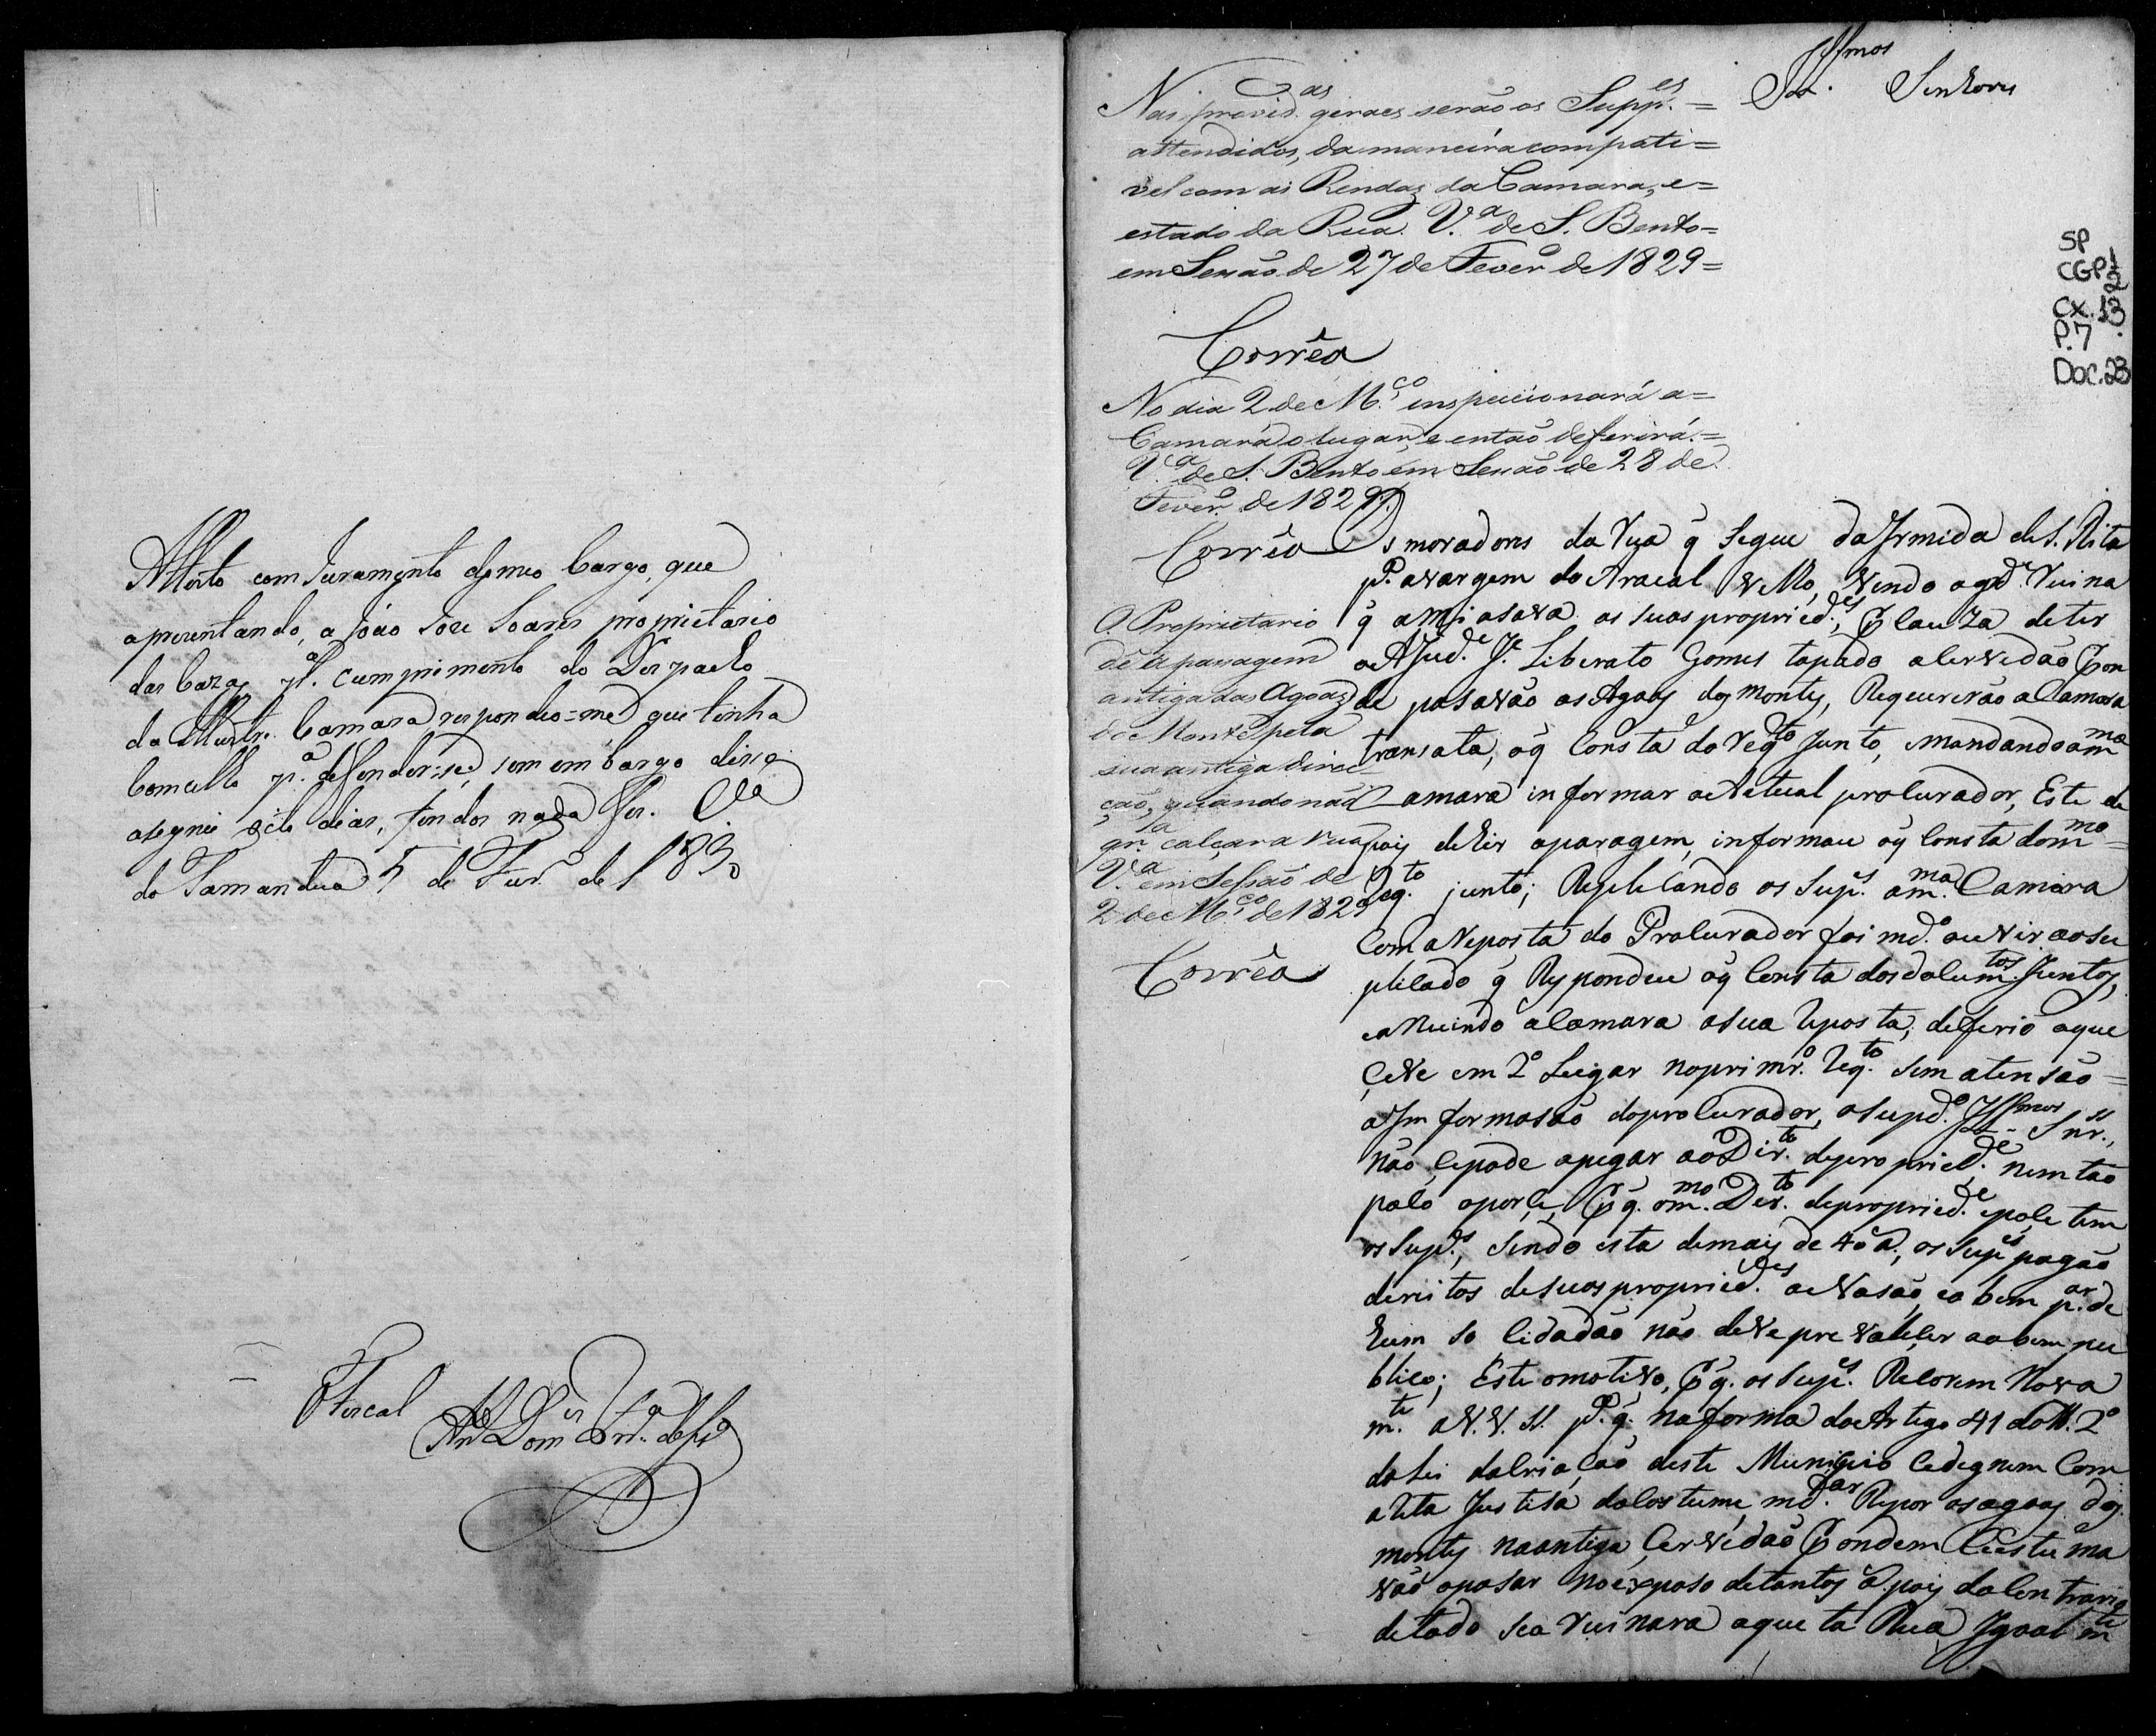 Attesto com Juramento do meo Cargo, que
aprezentando, a João Joze Soares proprietario
das Cazas, pa. cumprimento do Despacho
da Illustre Camara respondeo-me que tinha
Comcelho pa. deffender-se, sem embargo diso
asegnei oito dias, findos nada fes. Va
do Tamandua 5 de Fevro. de 1830
O Fiscal
Illmos
Snrs. Senhores
Nas provid.as geraes serão os Supp.es =
attendidos, da maneira compati=
vel com as Rendas da Camara, e=
estado da Rua. V.a de S. Bento=
em Sessão de 27 de Fever.o de 1829=
Corrêa
No dia 2 de M.ço inspeccionará a=
Camara o lugar, e então deferirá.=
V.a de S. Bento em Sessão de 28 de
Fever.o de 1829.
Corrêa
O Proprietario
dê a passagem
antiga das Agoas
do Monte pela
sua antiga direc-
ção, quando não
gr.a calçar a rua
V.a em Sessão de
2 de M.ço de 1829
Corrêa
Os moradores da Rua q̃ segue da Irmida de S. Rita
pa. a vargem do Aracal velho, vendo a gd.e Ruina
q̃ amiasava as suas propried.es, p̃ Cauza de ter
o Ajud.e J.e Liberato Gomes tapado a Cervedão p̃ on
de pasavão as Agoas dos montes, Requererão a Camara
transata, o q̃ Consta do Reqto. Junto, e mandando a mma.
Camara informar o Actual procurador, Este de
pois de vir a paragem, informou o q̃ Consta do mmo. =
Reqto. junto; Replicando os Sup.es a mma. Camara
Com a Reposta do Procurador foi md.o ouvir ao Su
plicado q̃ Respondeu o q̃ Consta dos documtos. Juntos,
e ouvindo a Camara a sua Reposta, deferio o que
Ceve em 2o Lugar no primr.o Reqto. sem atensão =
a Informasão do procurador, o supd.o Illmos Snrs.,
não Ce pode apegar ao Dirto. de propried.e nem tão
poco a pose, p̃ q̃. o mmo. Derto. de propried.e e pose tem
os Sup.es, sendo esta de mais de 40 a., os Sup.es pagão
dereitos de suas propried.es a Nasão, e o bem par. de
hum so Cidadão não deve prevalecer ao bem pu
blico; Este o motivo, p̃ q̃. os Sup.es Recorem Nova
mte. a V.V. SS. pa. q̃. na forma do Artigo 41 do §. 2o
da Lei da Criação deste Municipio Ce degnem Com
a Reta Justisa do Costume, mdar. Repor as agoas dos
montes na antiga Cervedão p̃ ondem Custuma
vão a pasar no espaso de tantos a. pois do Contrario
de todo se a Ruinara aquela Rua Igoal mte
SP
CGP1
2
Cx. 13
P. 7
Doc. 23